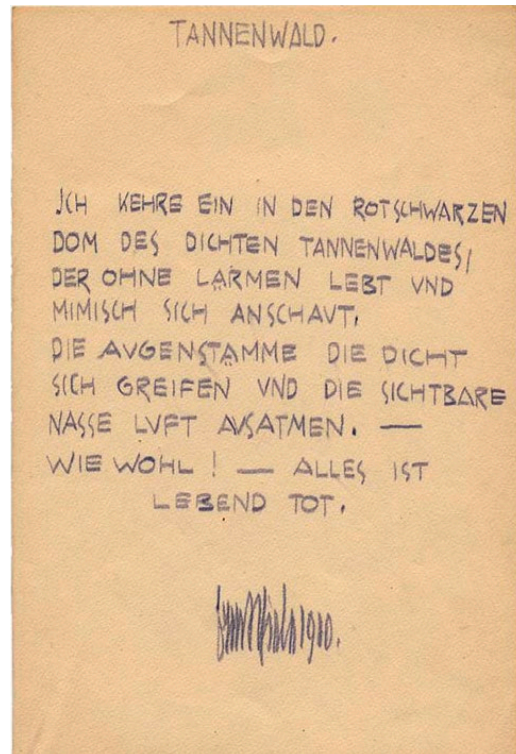 TANNENWALD.
ICH KEHRE EIN IN DEN ROTSCHWARZEN
DOM DES DICHTEN TANNENWALDES,
DER OHNE LÄRMEN LEBT VND
MIMISCH SICH ANSCHAVT.
DIE AVGENSTÄMME DIE DICHT
SICH GREIFEN VND DIE SICHTBARE
NASSE LVFT AVSATMEN. —
WIE WOHL ! — ALLES IST
LEBEND TOT.
1910.